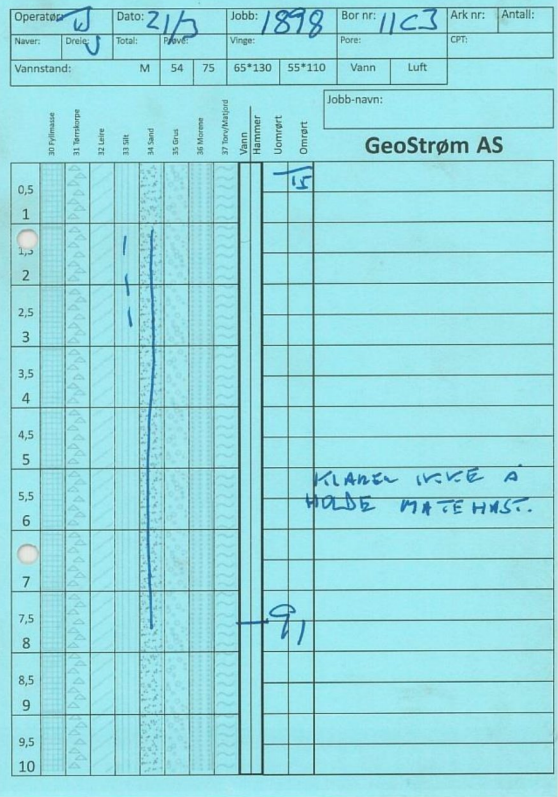 Operatør: Dato: 21/3 Jobb: 1898 Bor nr: 11C3 Ark nr: Antall:
Naver: Dreie: Total: Prøve: Vinge: Pore: CPT:
Vannstand: M 54 75 65*130 55*110 Vann Luft
Jobb-navn:
30 Fyllmasse
31 Tørrskorpe
32 Leire
33 Silt
34 Sand
35 Grus
36 Morene
37 Torv/Matjord
Vann
Hammer
Uomrørt
Omrørt
GeoStrøm AS
0,5
15
1
1,5
2
2,5
3
3,5
4
4,5
5
KLARER IKKE Å
5,5
HOLDE MATEHAST.
6
7
7,5
8
8,5
9
9,5
10